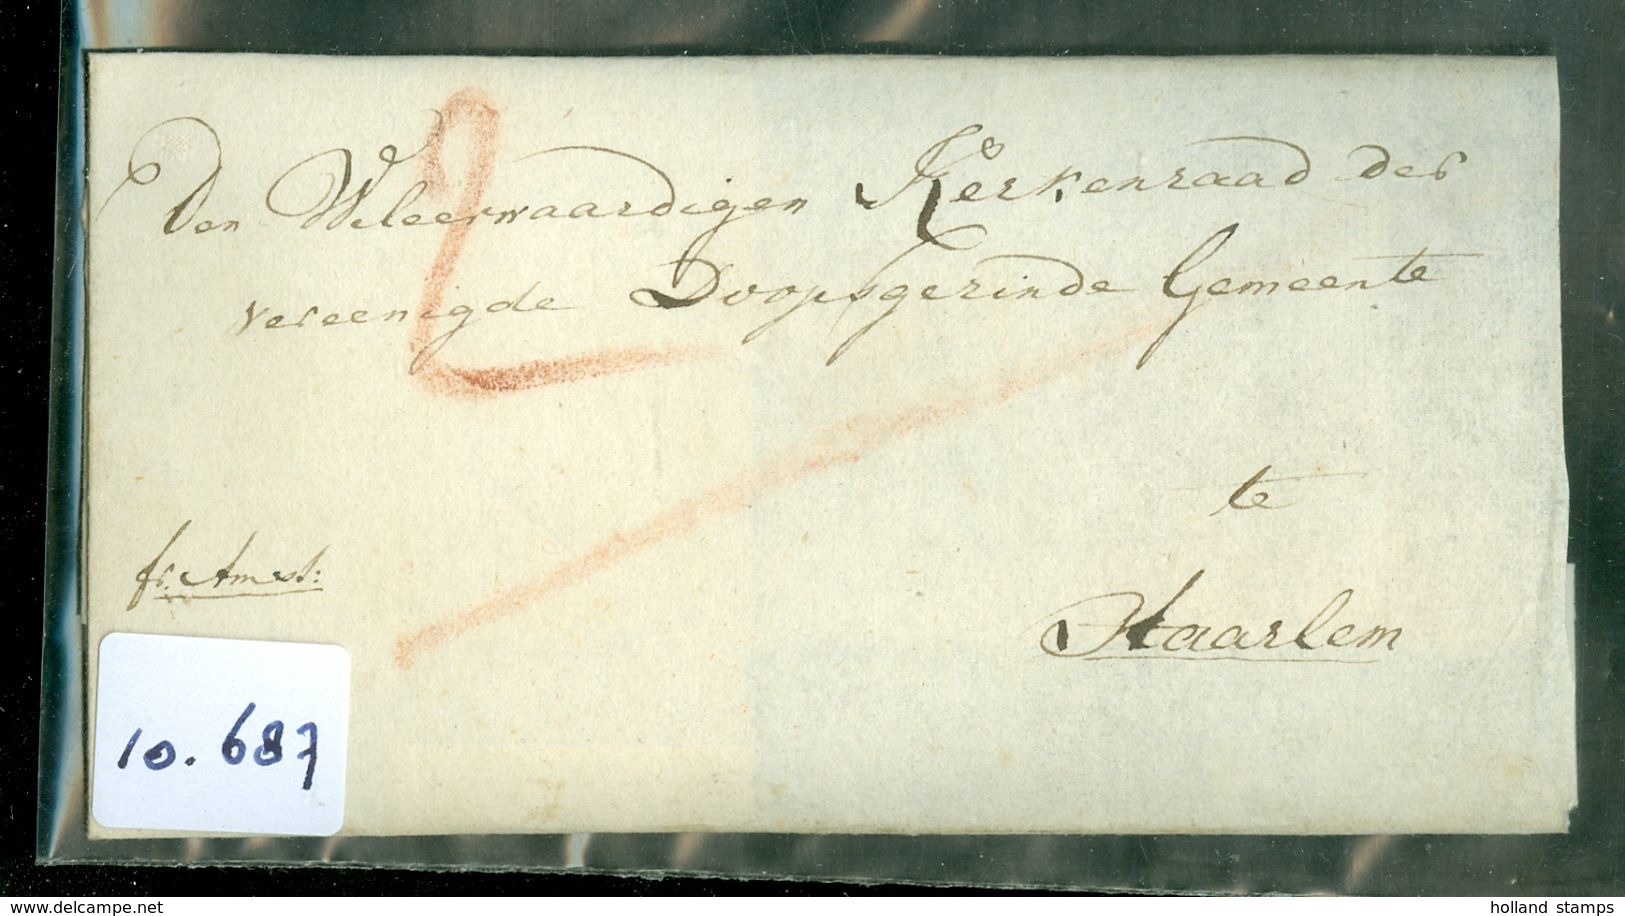 2
Den WelEerwaardigen Kerkenraad der
vereenigde Doopsgezinde Gemeente
te
fr. Amst:
Haarlem
10.687
delcampe.net
holland stamps